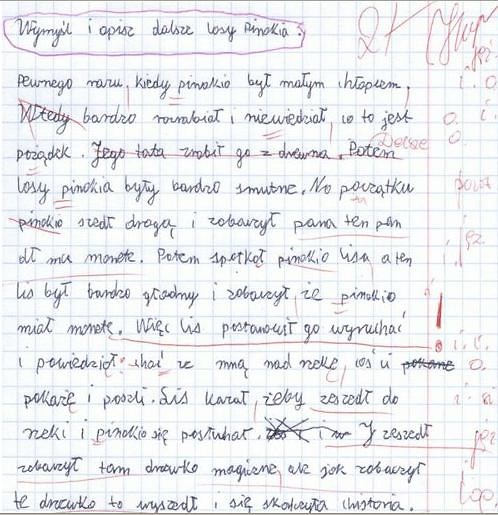 Wymyśl i opisz dalsze losy Pinokia?
2+
Pewnego razu, kiedy pinokio był małym chłopcem,
Wtedy bardzo rozrabiał i niewiedział, co to jest
pożądek. Jego tata zrobił go z drewna. Potem Dalsze
losy pinokia były bardzo smutne. Na początku
pinokio szedł drogą i zobaczył pana ten pan
dł mu monete. Potem spotkał pinokio lisa a ten
lis był bardzo głodny i zobaczył, że pinokio
miał monete. Więc lis postanowił go wyruchać
i powiedział: chać ze mną nad rzekę, coś ci pokaże
pokażę i poszli. Lis kazał, żeby zeszedł do
rzeki i pinokio się posłuchał. I zeszedł
zobaczył tam drewko magiczne, ale jak zobaczył
te drzewko to wyszedł i się skończyła historia.